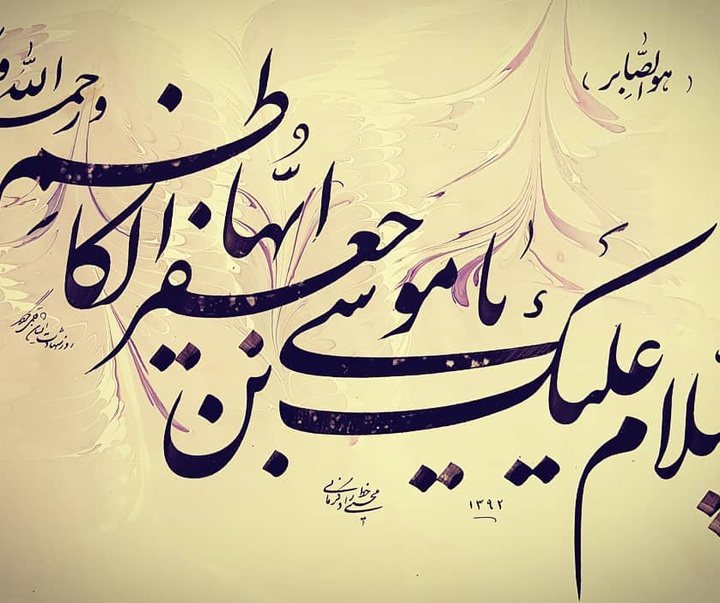 (هوالصّابر)
سلام علیک یا موسی بن جعفر ایّها الکاظم
ورحمة الله و
۱۳۹۲